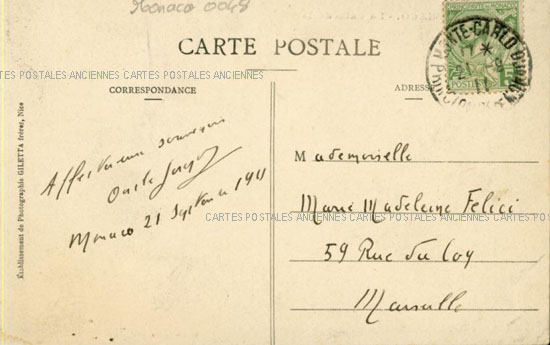 Monaco 0048
CARTE POSTALE
CARTES POSTALES ANCIENNES CARTES POSTALES ANCIENNES
CORRESPONDANCE
ADRESSE
MONTE-CARLO
Établissement de Photographie GILETTA frères, Nice
Affectueux souvenirs
Monaco 21 Septembre 1911
Mademoiselle
Marie Madeleine Felici
CARTES POSTALES ANCIENNES CARTES POSTALES ANCIENNES
59 Rue du Coq
Marseille